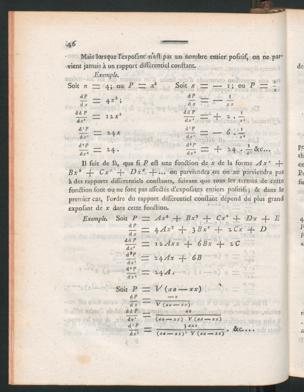 46
Mais lorsque l'exposant n'est pas un nombre entier positif, on ne par-
vient jamais à un rapport différentiel constant.
Exemple.
Soit n = 4; ou P = x⁴ Soit n = — 1; ou P = 1/x
dP/dx = 4x³; dP/dx = — 1/x²
ddP/dx² = 12x² ddP/dx² = + 2 . 1/x³
d³P/dx³ = 24x d³P/dx³ = — 6 . 1/x⁴
d⁴P/dx⁴ = 24. d⁴P/dx⁴ = + 24 . 1/x⁵ &c...
Il suit de là, que si P est une fonction de x de la forme Axⁿ +
Bxⁿ + Cxⁿ + Dxⁿ +... on parviendra ou on ne parviendra pas
à des rapports différentiels constans, suivant que les termes de cette
fonction sont ou ne sont pas affectés d'exposans entiers positifs; & dans le
premier cas, l'ordre du rapport différentiel constant dépend du plus grand
exposant de x dans cette fonction.
Exemple. Soit P = Ax⁴ + Bx³ + Cx² + Dx + E
dP/dx = 4Ax³ + 3Bx² + 2Cx + D
ddP/dx² = 12Axx + 6Bx + 2C
d³P/dx³ = 24Ax + 6B
d⁴P/dx⁴ = 24A.
Soit P = √(aa — xx)
dP/dx = —x/√(aa — xx)
ddP/dx² =
d³P/dx³ = &c....